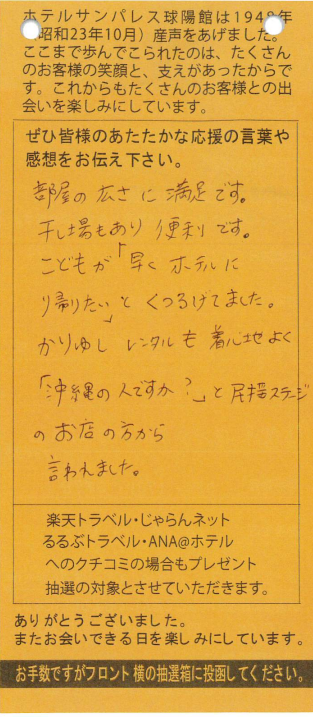 ホテルサンパレス球陽館は1948年
(昭和23年10月)産声をあげました。
ここまで歩んでこられたのは、たくさん
のお客様の笑顔と、支えがあったからで
す。これからもたくさんのお客様との出
会いを楽しみにしています。
ぜひ皆様のあたたかな応援の言葉や
感想をお伝え下さい。
部屋の広さに満足です。
干し場もあり便利です。
こどもが「早くホテルに
り帰りたい」とくつろげてました。
かりゆしレンタルも着心地よく
「沖縄の人ですか?」と民謡ステージ
のお店の方から
言われました。
楽天トラベル・じゃらんネット
るるぶトラベル・ANA@ホテル
へのクチコミの場合もプレゼント
抽選の対象とさせていただきます。
ありがとうございました。
またお会いできる日を楽しみにしています。
お手数ですがフロント横の抽選箱に投函してください。